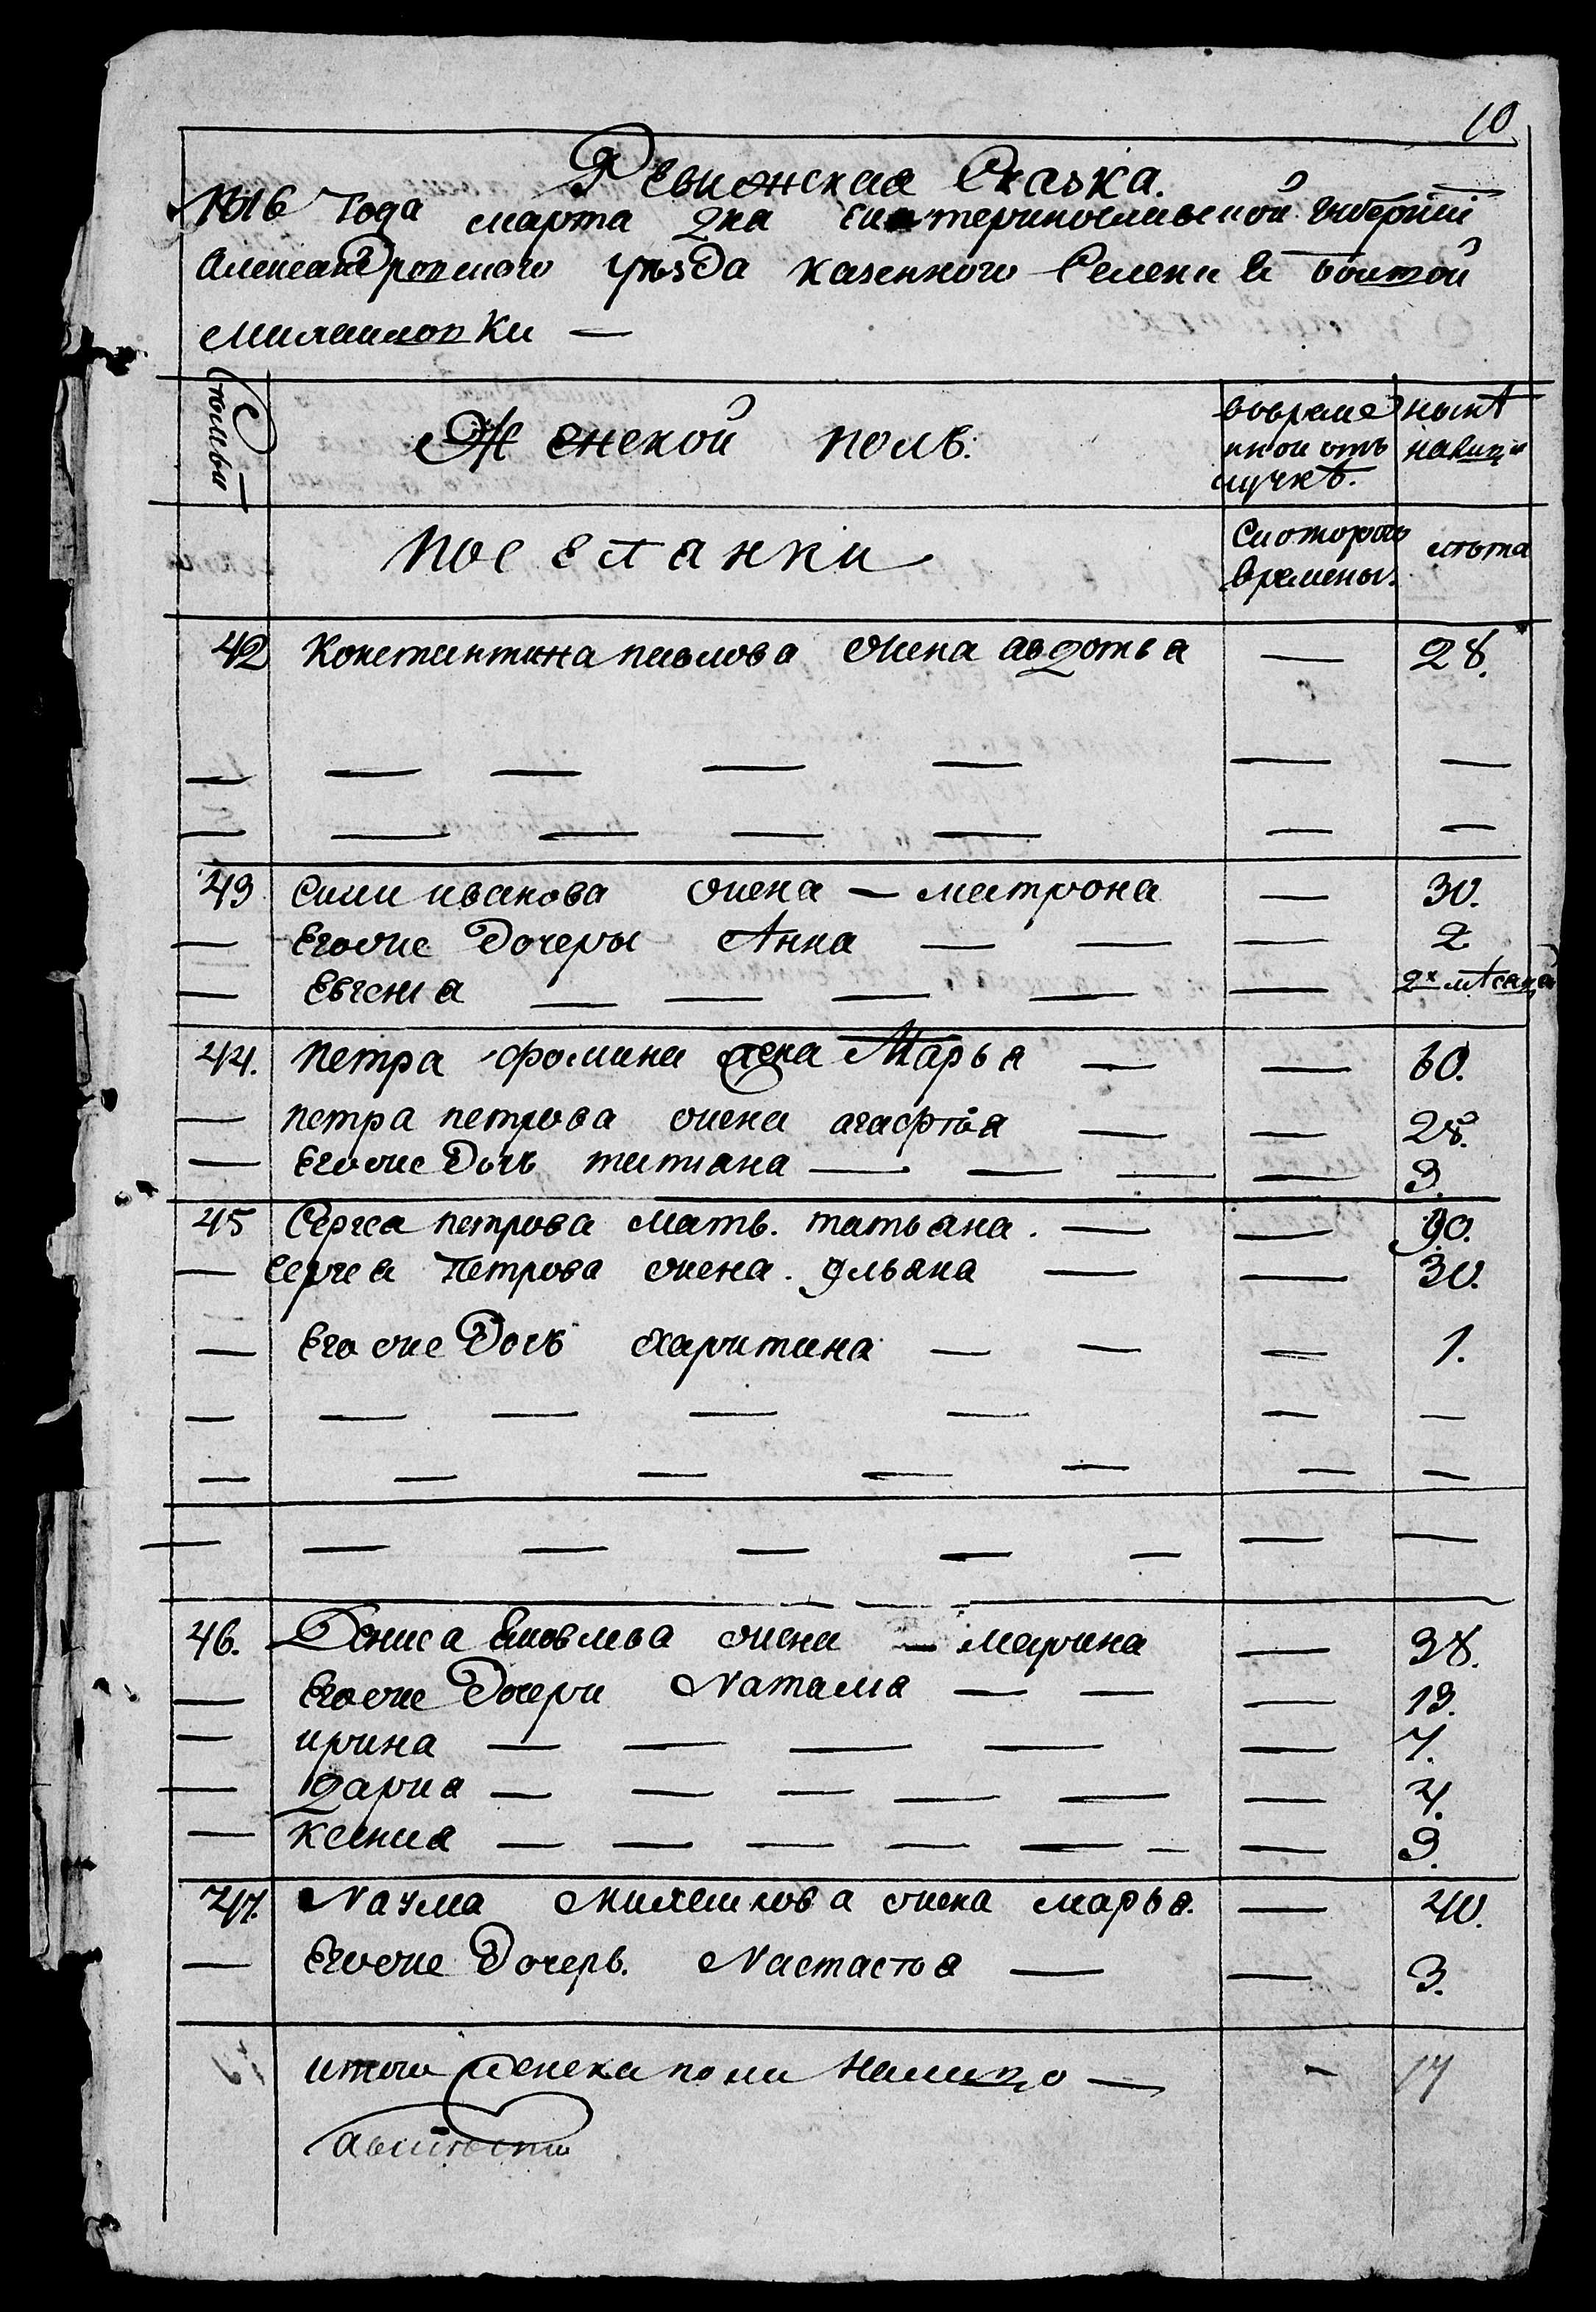 10
Ревижская Сказка.
1816 Года марта 2ка Екатеринославской Губернии
Александровского уезда казенного Селения Белой
Михайловки —
Семьи
Женской полъ.
вовремене
ной отъ
лучкѣ.
нынѣ
налицо
поселанки
Скоторого
времены.
лѣта
42 Константина павлова жена авдотьа — 28.
— — — — — — —
— — — — — — —
43 Сими иванова жена — матрона — 30.
— Егоже дочеры Анна — — — 2
— Евгениа — — — — — 2х мѣсяцей
44. петра фомина жена Марьа — — 60.
— петра петрова жена агафіа — — 28.
— Егоже дочъ титиана — — — — 3.
45 Сергеа петрова мать. татьана. — — 90.
— Сергеа петрова жена. ульана — — 30.
— Егоже дочъ харитина — — — 1.
— — — — — — —
— — — — — — —
— — — — — — — —
46. Дениса Яковлева жена — марина — 38.
— Егоже дочери Наталиа — — — 13.
— ирина — — — — — 7.
— дариа — — — — — — 4.
— ксениа — — — — — — — 3.
47. Наума Михаилова жена марьа. — 40.
— Егоже дочерь. Настасіа — — 3.
итого женска пола налицо — — 17